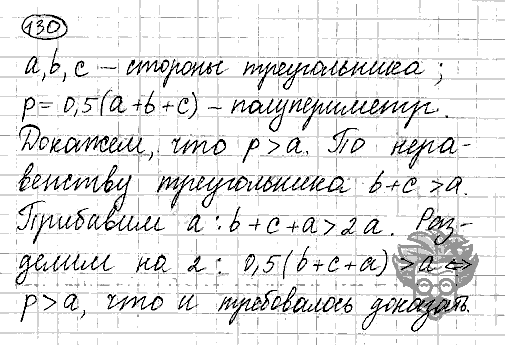 130
a, b, c – стороны треугольника;
p = 0,5(a+b+c) – полупериметр.
Докажем, что p > a. По нера-
венству треугольника b+c > a.
Прибавим a: b+c+a > 2a. Раз-
делим на 2: 0,5(b+c+a) > a ⇔
p > a, что и требовалось доказать.